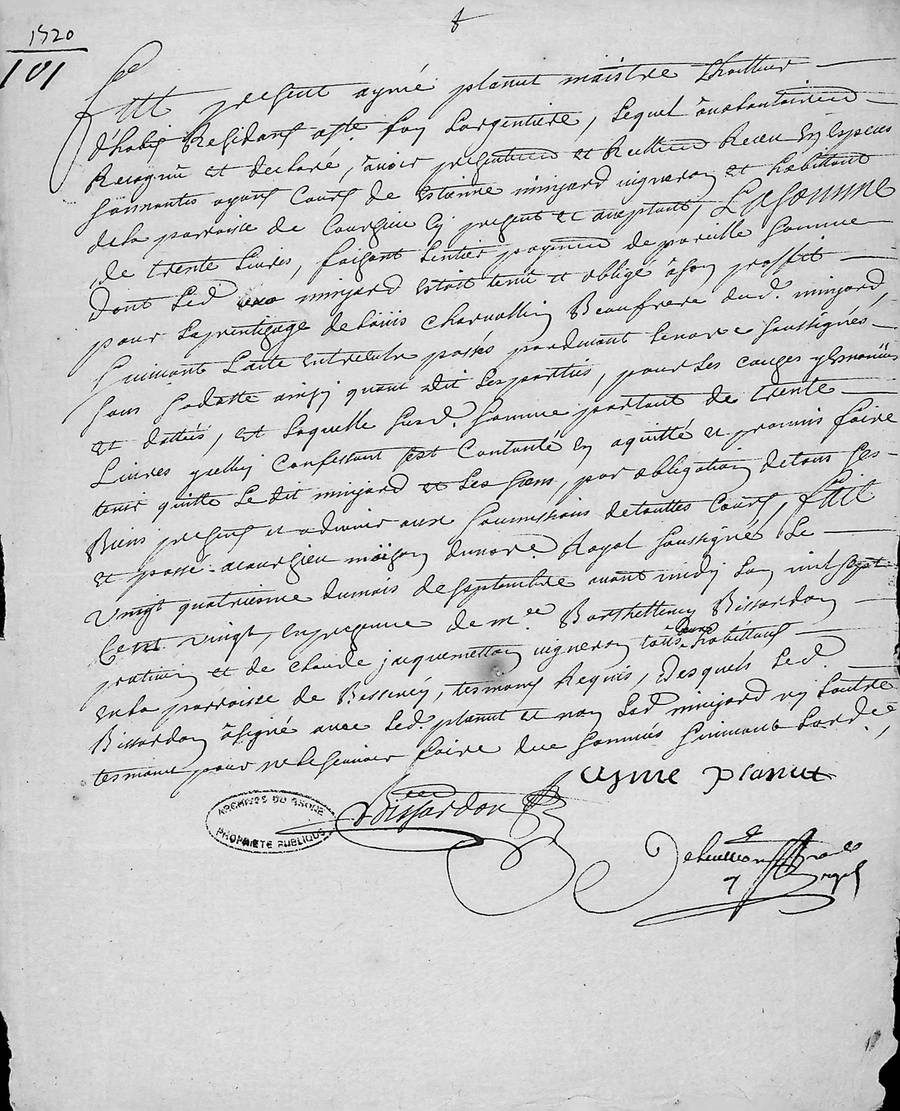 1720
101
fut present aymé planut maistre tailleur
d'habis Residant aste foy Largentiere, lequel
Recognu et declaré, avoir presentem et Reellem Receu En especes
sonnantes ayant Cours de Estienne minjard vigneron et habittant
de la parroisse de Courzieu Cy present et aceptant, La somme
de trente Livres, faisant Lentier payemen de pareille somme
Dont led minjard estoit tenu et obligé à son proffit
pour Laprentissage de Louis Charvollin Beaufrere dud. minjard
suivant Lacte entreeux passés pardevant le nore soussignés
sous sa datte ainsy quont dit les parties, pour les causes y
et dattés, et laquelle susd. somme portant de trente
Livres Confessant est Contanté En aquitté et promis faire
tenir quitte Le dit minjard et les siens, par obligation de tous ses
Biens presens et advenir aux soumissions de touttes Cours, fait
et passé a courzieu maison du nore Royal soussigné le
vingt quatriesme du mois de septembre avant midy Lan mil sept
Cent vingt, En presence de me Barthellemy Bissardon
praticien et de claude jacquemetton vigneron tous deux habittans
en la parroisse de Bessenay, tesmoins Requis, desquels led.
Bissardon à signé avec led. planut et non led. minjard ny lautre
tesmoin pour ne le sçavoir faire de ce sommés suivant Lordce,
ayme planut
Bissardon
ARCHIVES DU RHÔNE
PROPRIÉTÉ PUBLIQUE